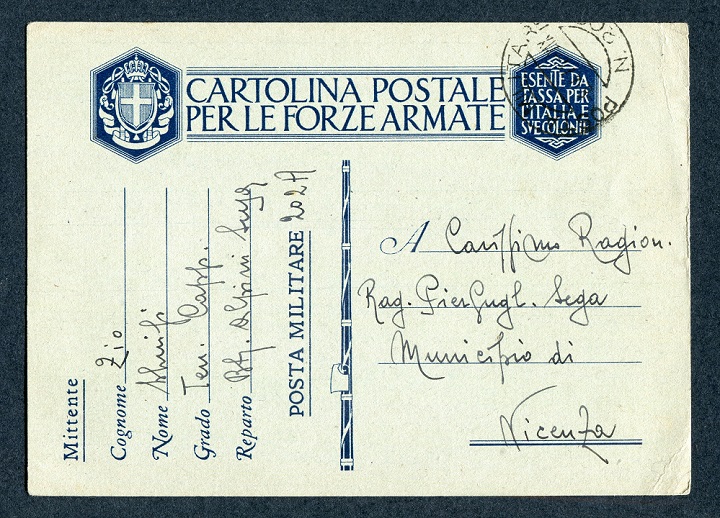 CARTOLINA POSTALE
PER LE FORZE ARMATE
ESENTE DA
TASSA PER
L'ITALIA E
SUE COLONIE
A Carissimo Ragion.
Rag. PierGugl. Sega
Municipio di
Vicenza
Mittente
Cognome Zio
Nome
Grado Ten. Capp.
Reparto Btg. Alpini
POSTA MILITARE 202 A